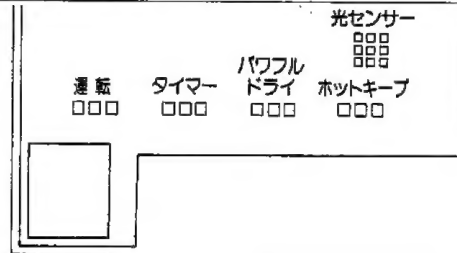 光センサー
運転 タイマー パワフル ドライ ホットキープ